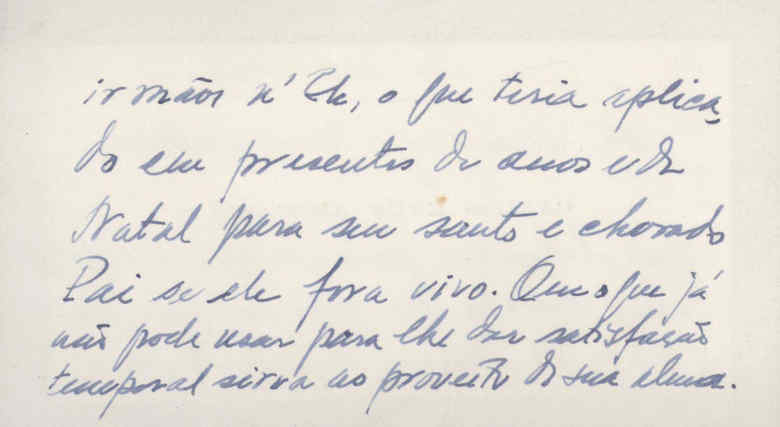 irmãos n'Ele, o que teria aplica-
do em presentes de anos e de
Natal para seu santo e chorado
Pai se ele fora vivo. Que o que já
não pode usar para lhe dar satisfação
temporal sirva ao proveito de sua alma.